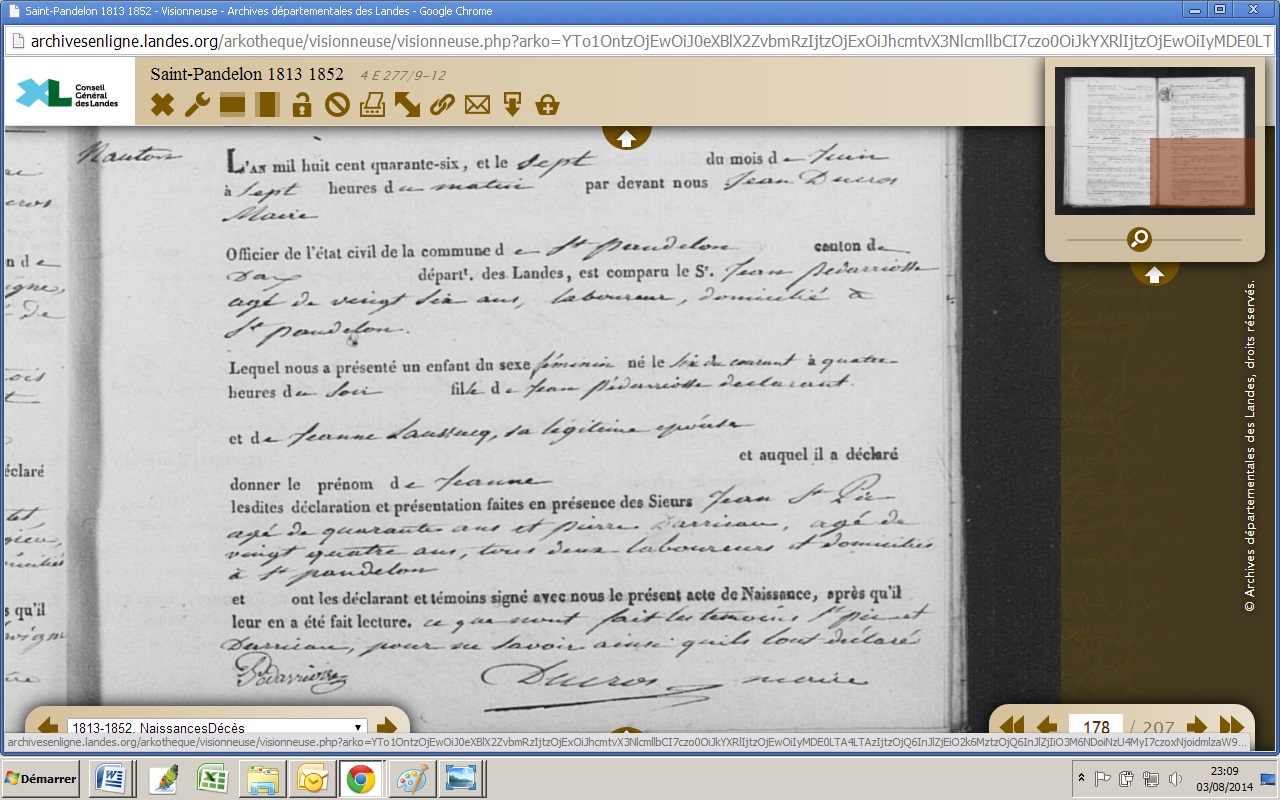 Saint-Pandelon 1813 1852 - Visionneuse - Archives départementales des Landes - Google Chrome
archivesenligne.landes.org/arkotheque/visionneuse/visionneuse.php?arko=
Conseil
Général
des Landes
Saint-Pandelon 1813 1852 4 E 277/9-12
Nauton
L'AN mil huit cent quarante-six, et le sept du mois de Juin
à sept heures du matin par devant nous Jean Ducros
Maire
Officier de l'état civil de la commune de St pandelon canton de
Dax départt. des Landes, est comparu le Sr. Jean pédarriosse
agé de veingt six ans, laboureur, domicilié à
St pandelon.
Lequel nous a présenté un enfant du sexe féminin né le six du courant à quatre
heures du soir fille de Jean pédarriosse declarant.
et de Jeanne Laussucq, sa légitime epouse
et auquel il a déclaré
donner le prénom de Jeanne
lesdites déclaration et présentation faites en présence des Sieurs Jean St Pic
agé de quarante ans et pierre Darrieau, agé de
veingt quatre ans, tous deux laboureurs et domiciliés
à St pandelon
et ont les déclarant et témoins signé avec nous le présent acte de Naissance, après qu'il
leur en a été fait lecture. ce que nont fait les temoins St pic et
Darrieau, pour ne savoir ainsi quils lont déclaré
Ducros maire
éclaré
s qu'il
© Archives départementales des Landes, droits réservés.
1813-1852, NaissancesDécès
178 / 207
archivesenligne.landes.org/arkotheque/visionneuse/visionneuse.php?arko=
Démarrer
23:09
03/08/2014